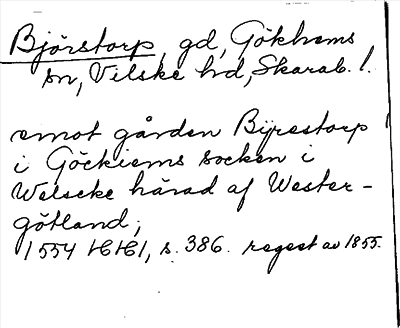 Björstorp, gd, Gökhems
sn, Vilske hd, Skarab. l.
emot gården Byrestorp
i Göckiems socken i
Welscke härad af Wester-
götland;
1554 HH1, s. 386. regest av 1855.